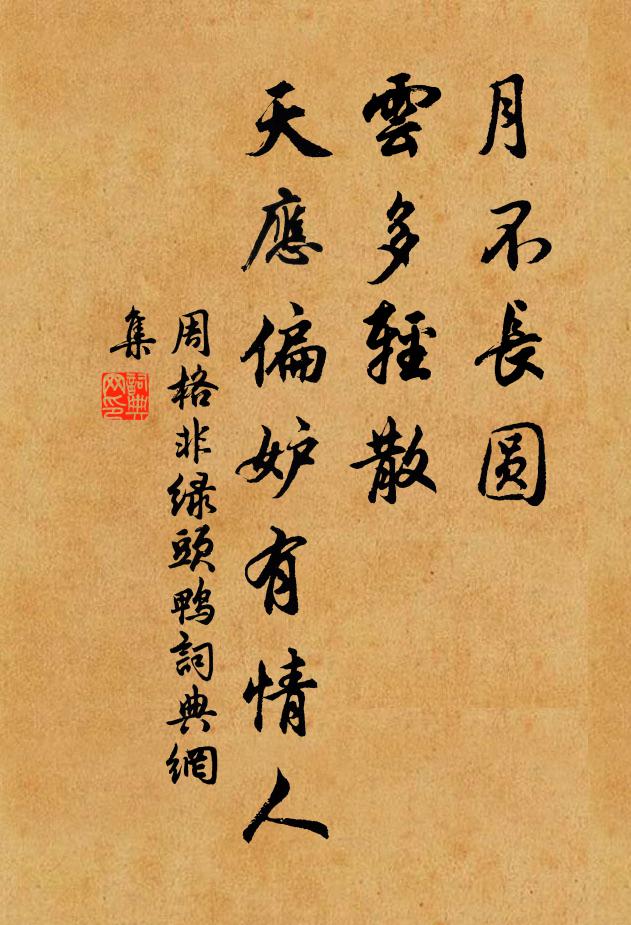 月不长圆
雲多輕散
天應偏妒有情人
周格非绿頭鴨詞典網
集
詞典
网印